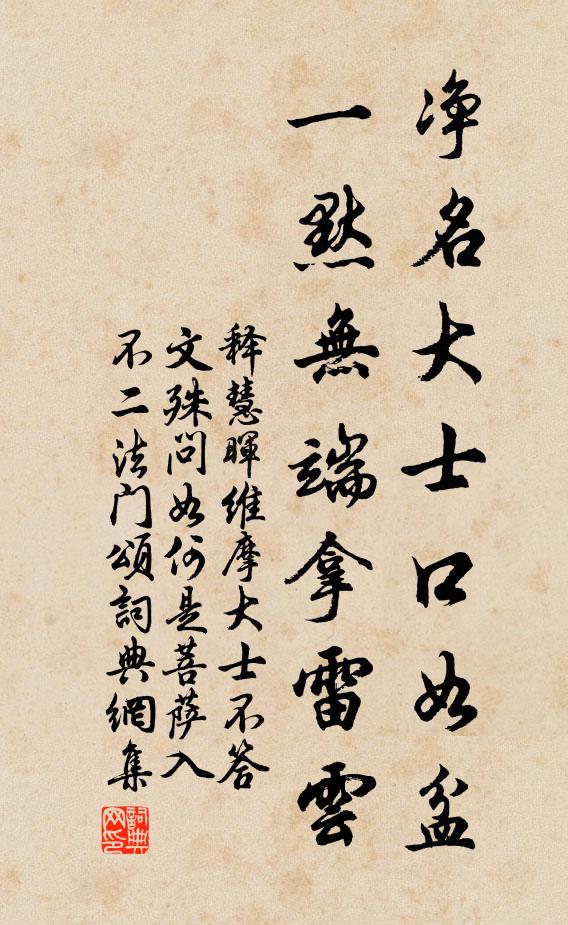 净名大士口如盆
一默無端拿雷雲
释慧暉維摩大士不答
文殊問如何是菩薩入
不二法门頌詞典網集
詞典
网印